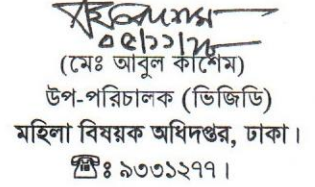 ০৫/১১/১৮
(মোঃ আবুল কাশেম)
উপ-পরিচালক (ভিজিডি)
মহিলা বিষয়ক অধিদপ্তর, ঢাকা।
☎ঃ ৯৩৩১২৭৭।